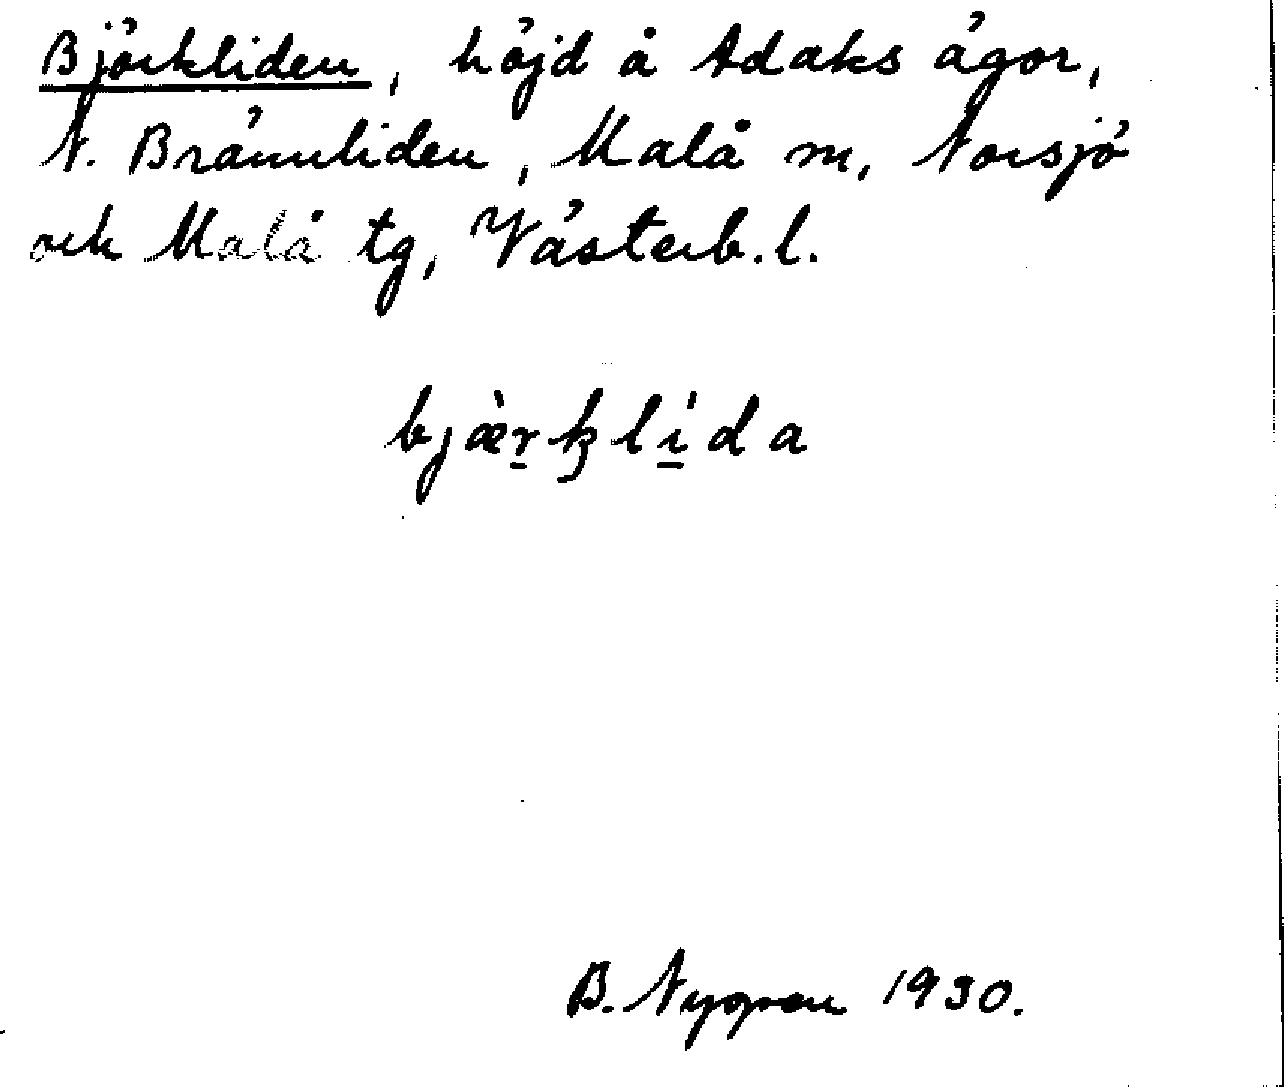 Björkliden, höjd å Adaks ägor,
N. Brännliden, Malå sn, Norsjö
ock Malå tg, Västerb.l.
bjæ̀r̠ķlí̠da
B. Nygren 1930.